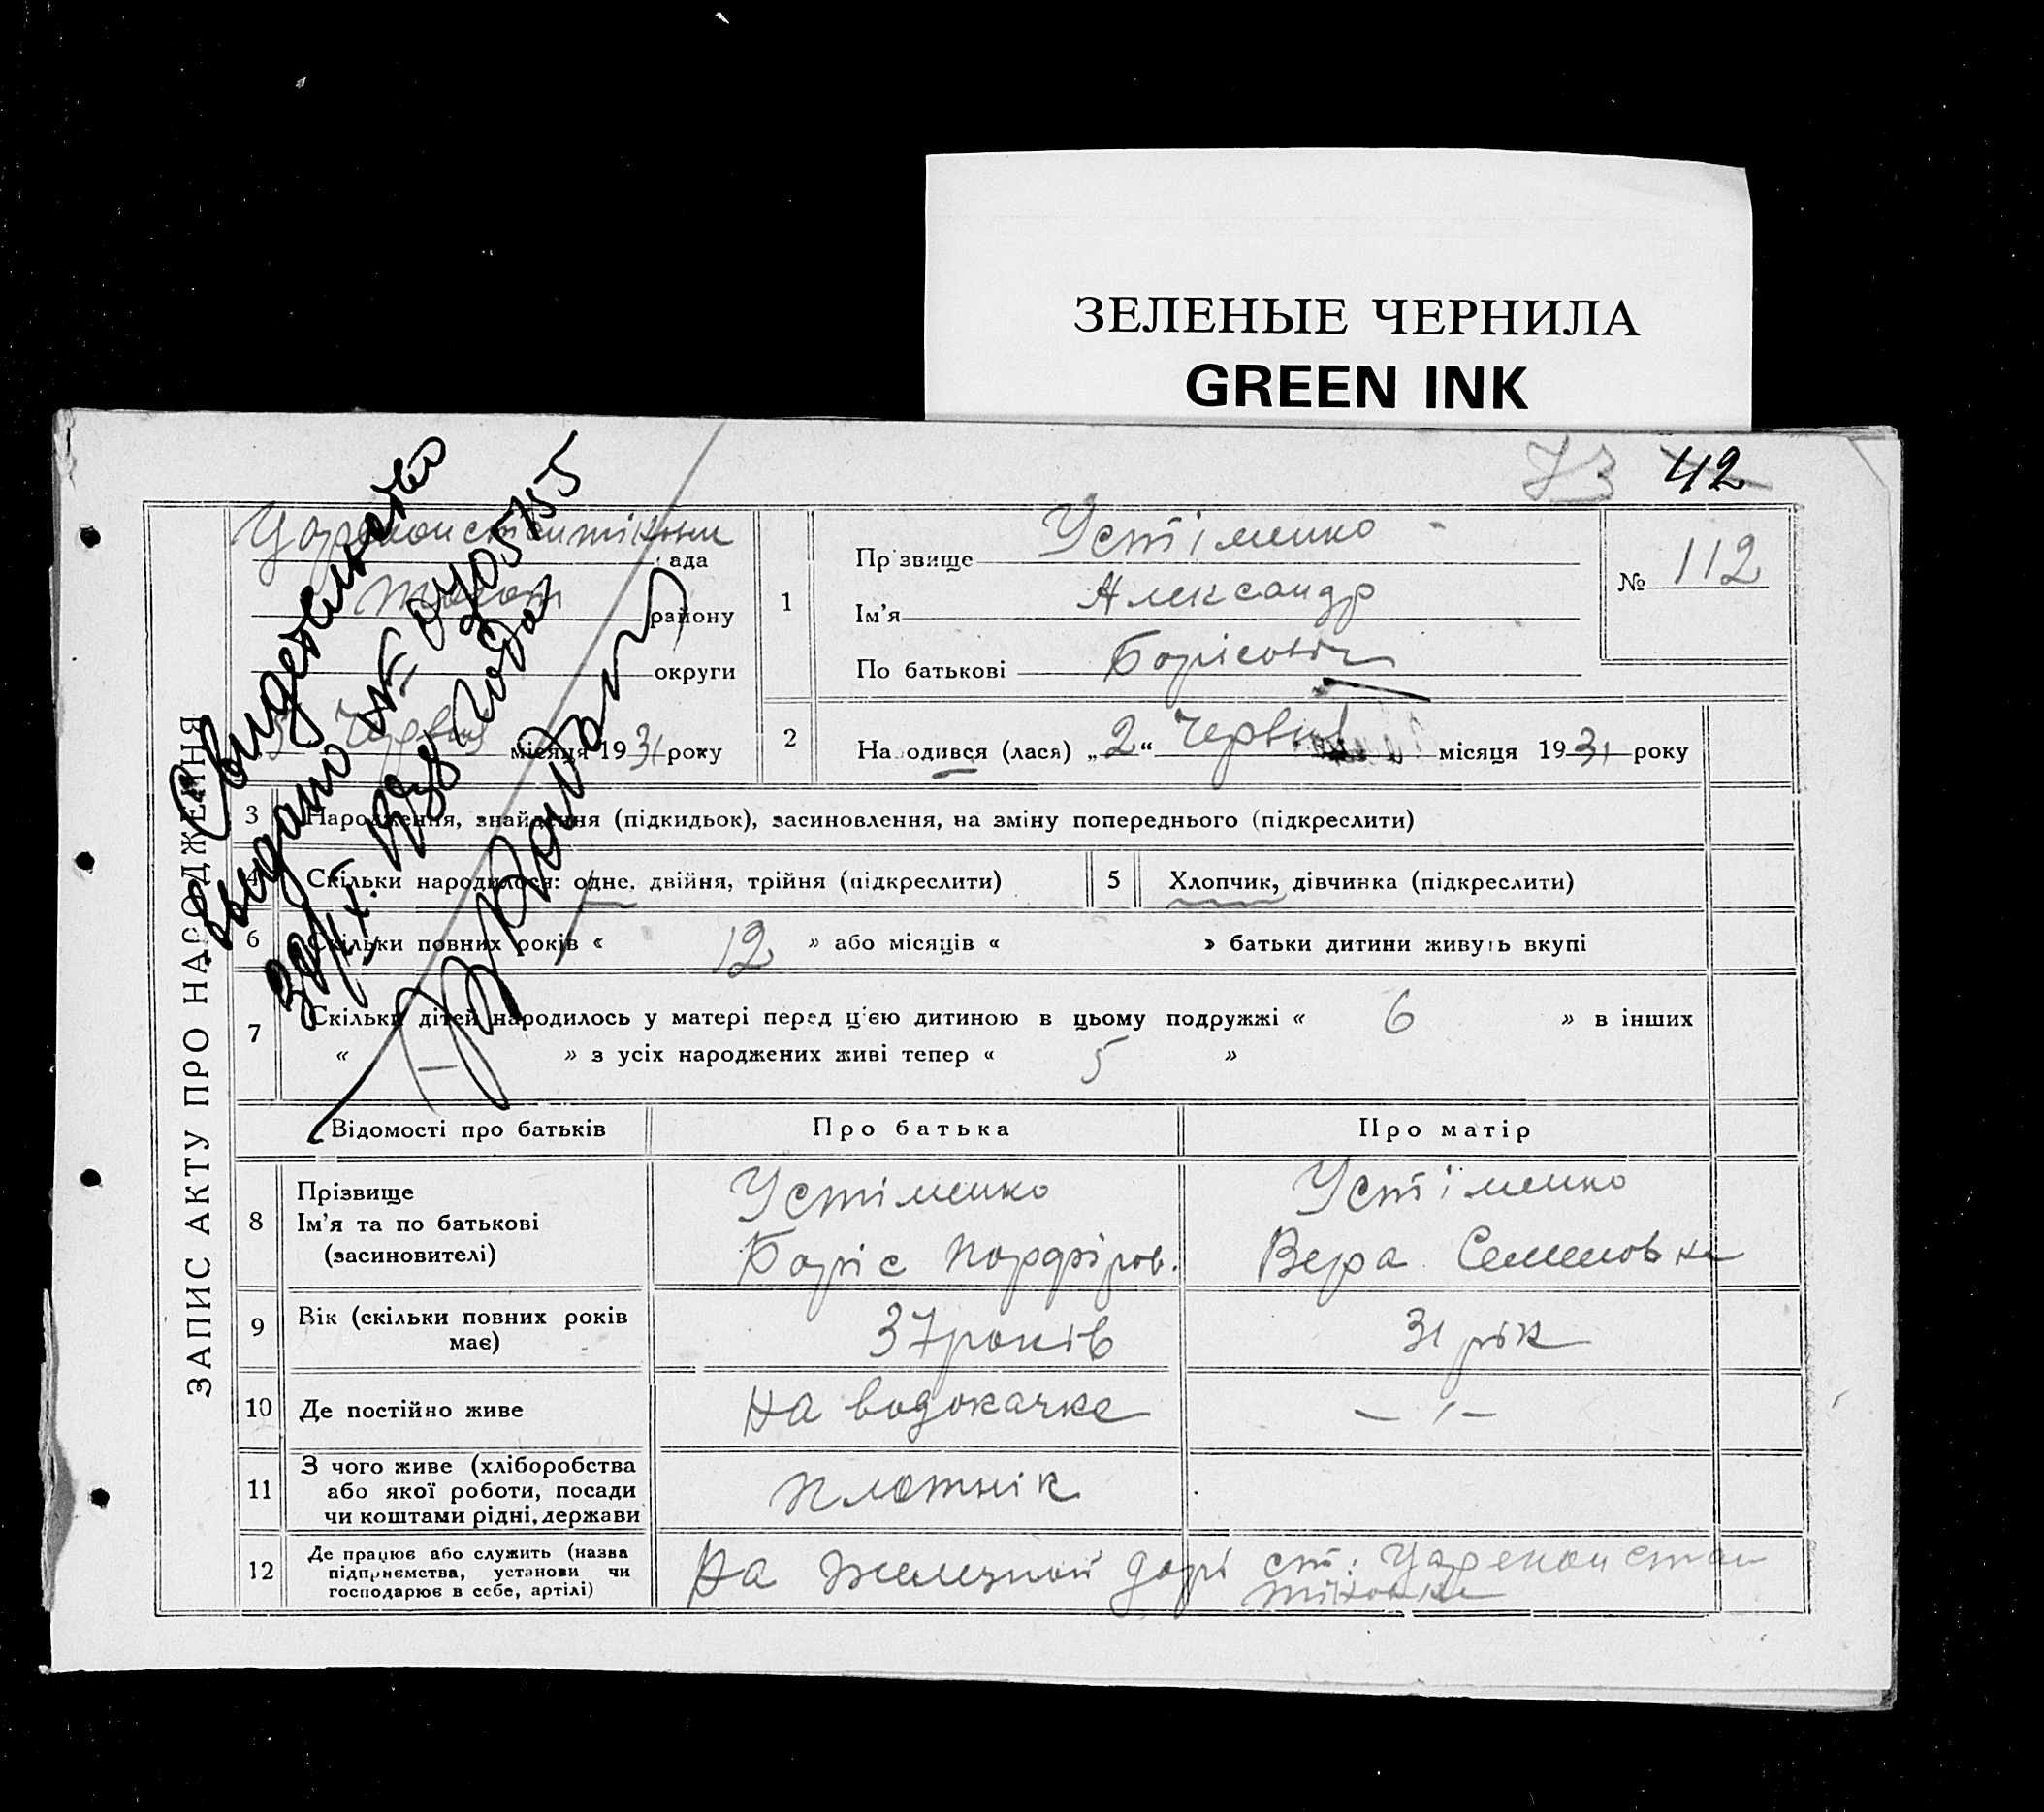 ЗЕЛЕНЫЕ ЧЕРНИЛА
GREEN INK
73 42
ЗАПИС АКТУ ПРО НАРОДЖЕННЯ
Царекон стантіновки рада
району
округи
5 Червня місяця 1931 року
Свидетельство
выдано
года
1
Прізвище Устіменко
Ім'я Александр
По батькові Борісовіч
№ 112
2 Народився (лася) „2“ Червня місяця 1931 року
3 Народження, знайдення (підкидьок), засиновлення, на зміну попереднього (підкреслити)
4 Скільки народилося: одне, двійня, трійня (підкреслити)
5 Хлопчик, дівчинка (підкреслити)
6 Скільки повних років « 12 » або місяців « » батьки дитини живуть вкупі
7 Скільки дітей народилось у матері перед цією дитиною в цьому подружжі « 6 » в інших
« — » з усіх народжених живі тепер « 5 »
Відомості про батьків Про батька Про матір
8 Прізвище
Ім'я та по батькові
(засиновителі)
Устіменко
Боріс Порфіров.
Устіменко
Вера Семеновна
9 Вік (скільки повних років
має)
37 років
31 рік
10 Де постійно живе
на водокачке
— ,, —
11 З чого живе (хліборобства
або якої роботи, посади
чи коштами рідні, держави
плотнік
12 Де працює або служить (назва
підприємства, установи чи
господарює в себе, артілі)
на железной дорі ст: Царекон стан
тіновка